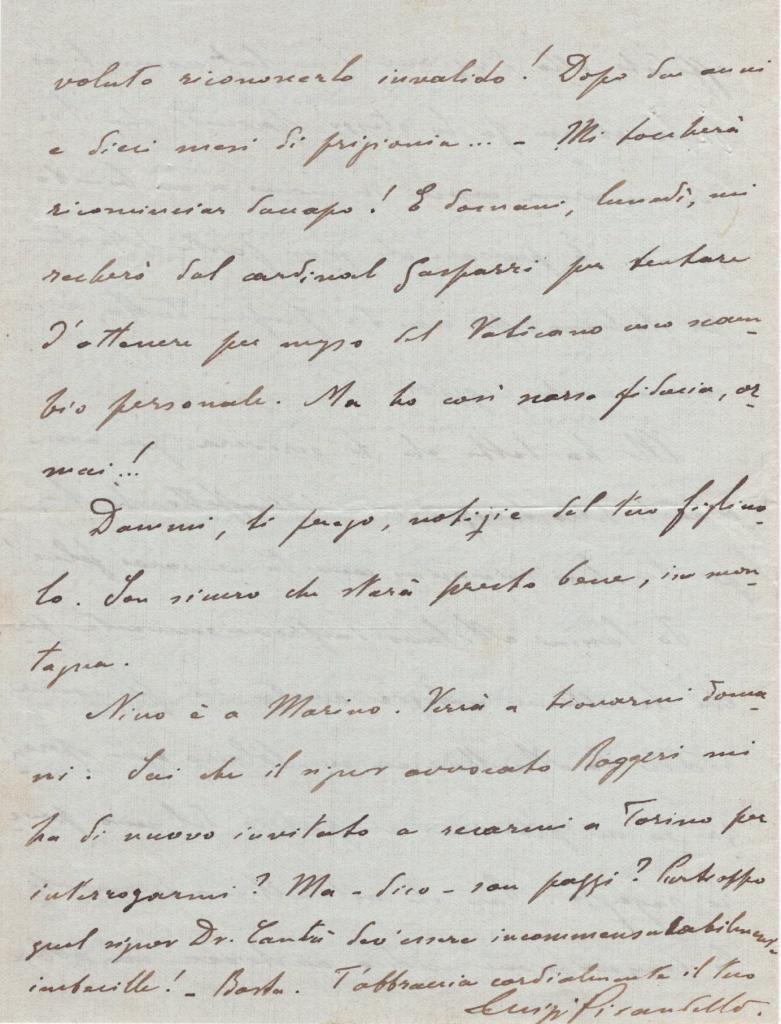 voluto riconoscerlo invalido! Dopo due anni
e dieci mesi di prigionia... - Mi toccherà
ricominciar daccapo! E domani, lunedì, mi
recherò dal cardinal Gasparri per tentare
d'ottenere per mezzo del Vaticano uno scam-
bio personale. Ma ho così scarsa fiducia, or-
mai!!
Dammi, ti prego, notizie del tuo figliuo-
lo. Son sicuro che starà presto bene, in mon-
tagna.
Nino è a Marino. Verrà a trovarmi doma-
ni. Sai che il signor avvocato Raggeri mi
ha di nuovo invitato a recarmi a Torino per
interrogarmi? Ma - dico - son pazzi? Purtroppo
quel signor Dr. Cantù dev'essere incommensurabilmente
imbecille! - Basta. T'abbraccia cordialmente il tuo
Luigi Pirandello.